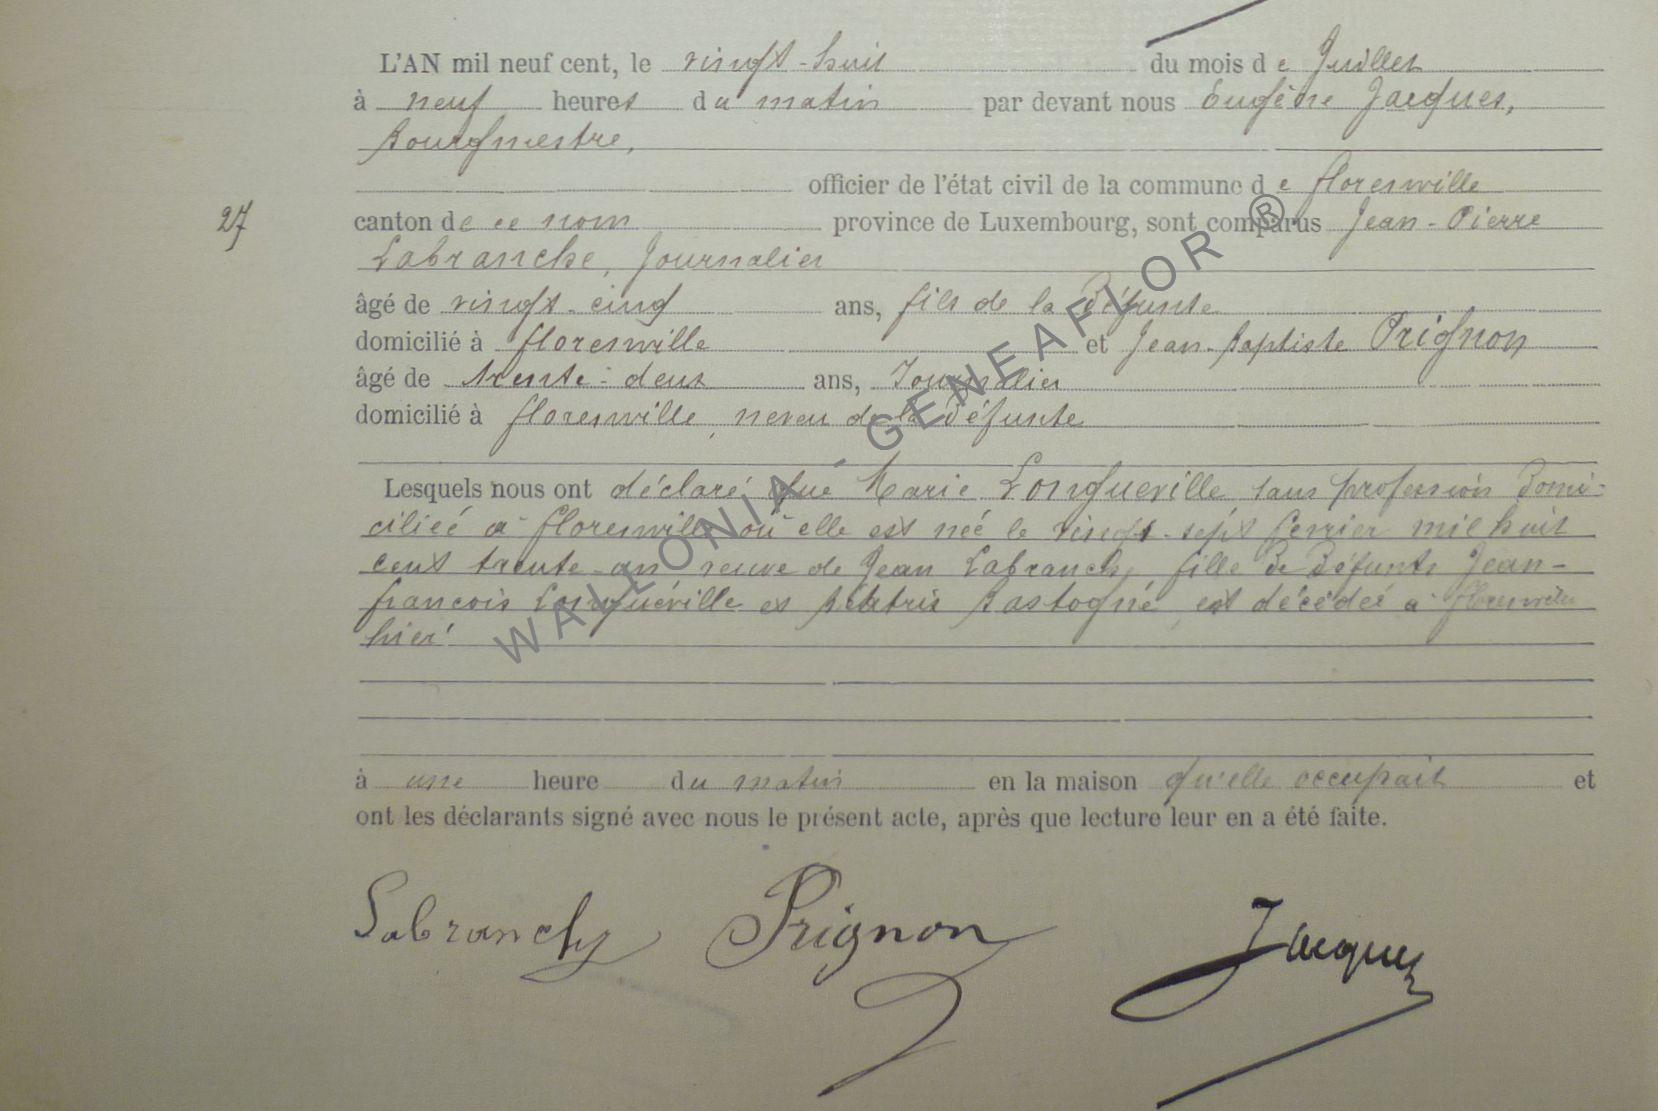 L'AN mil neuf cent, le vingt-huit du mois de Juillet
à neuf heures du matin par devant nous Eugène Jacques,
Bourgmestre,
officier de l'état civil de la commune de florenville
27
canton de ce nom province de Luxembourg, sont comparus Jean-Pierre
Labranche, Journalier
âgé de vingt-cinq ans, fils de la Défunte
domicilié à florenville et Jean-Baptiste Prignon
âgé de trente-deux ans, Journalier
domicilié à florenville, neveu de la Défunte
Lesquels nous ont déclaré que Marie Longueville sans profession Domi-
ciliée à florenville où elle est née le vingt-sept fevrier mil huit
cent trente-un veuve de Jean Labranche, fille de Défunts Jean-
francois Longuéville et Béatrix Bastogne, est décédée à florenville
hier
à une heure du matin en la maison qu'elle occupait et
ont les déclarants signé avec nous le présent acte, après que lecture leur en a été faite.
Labranche Prignon Jacques
WALLONIA - GENEAFLOR ®